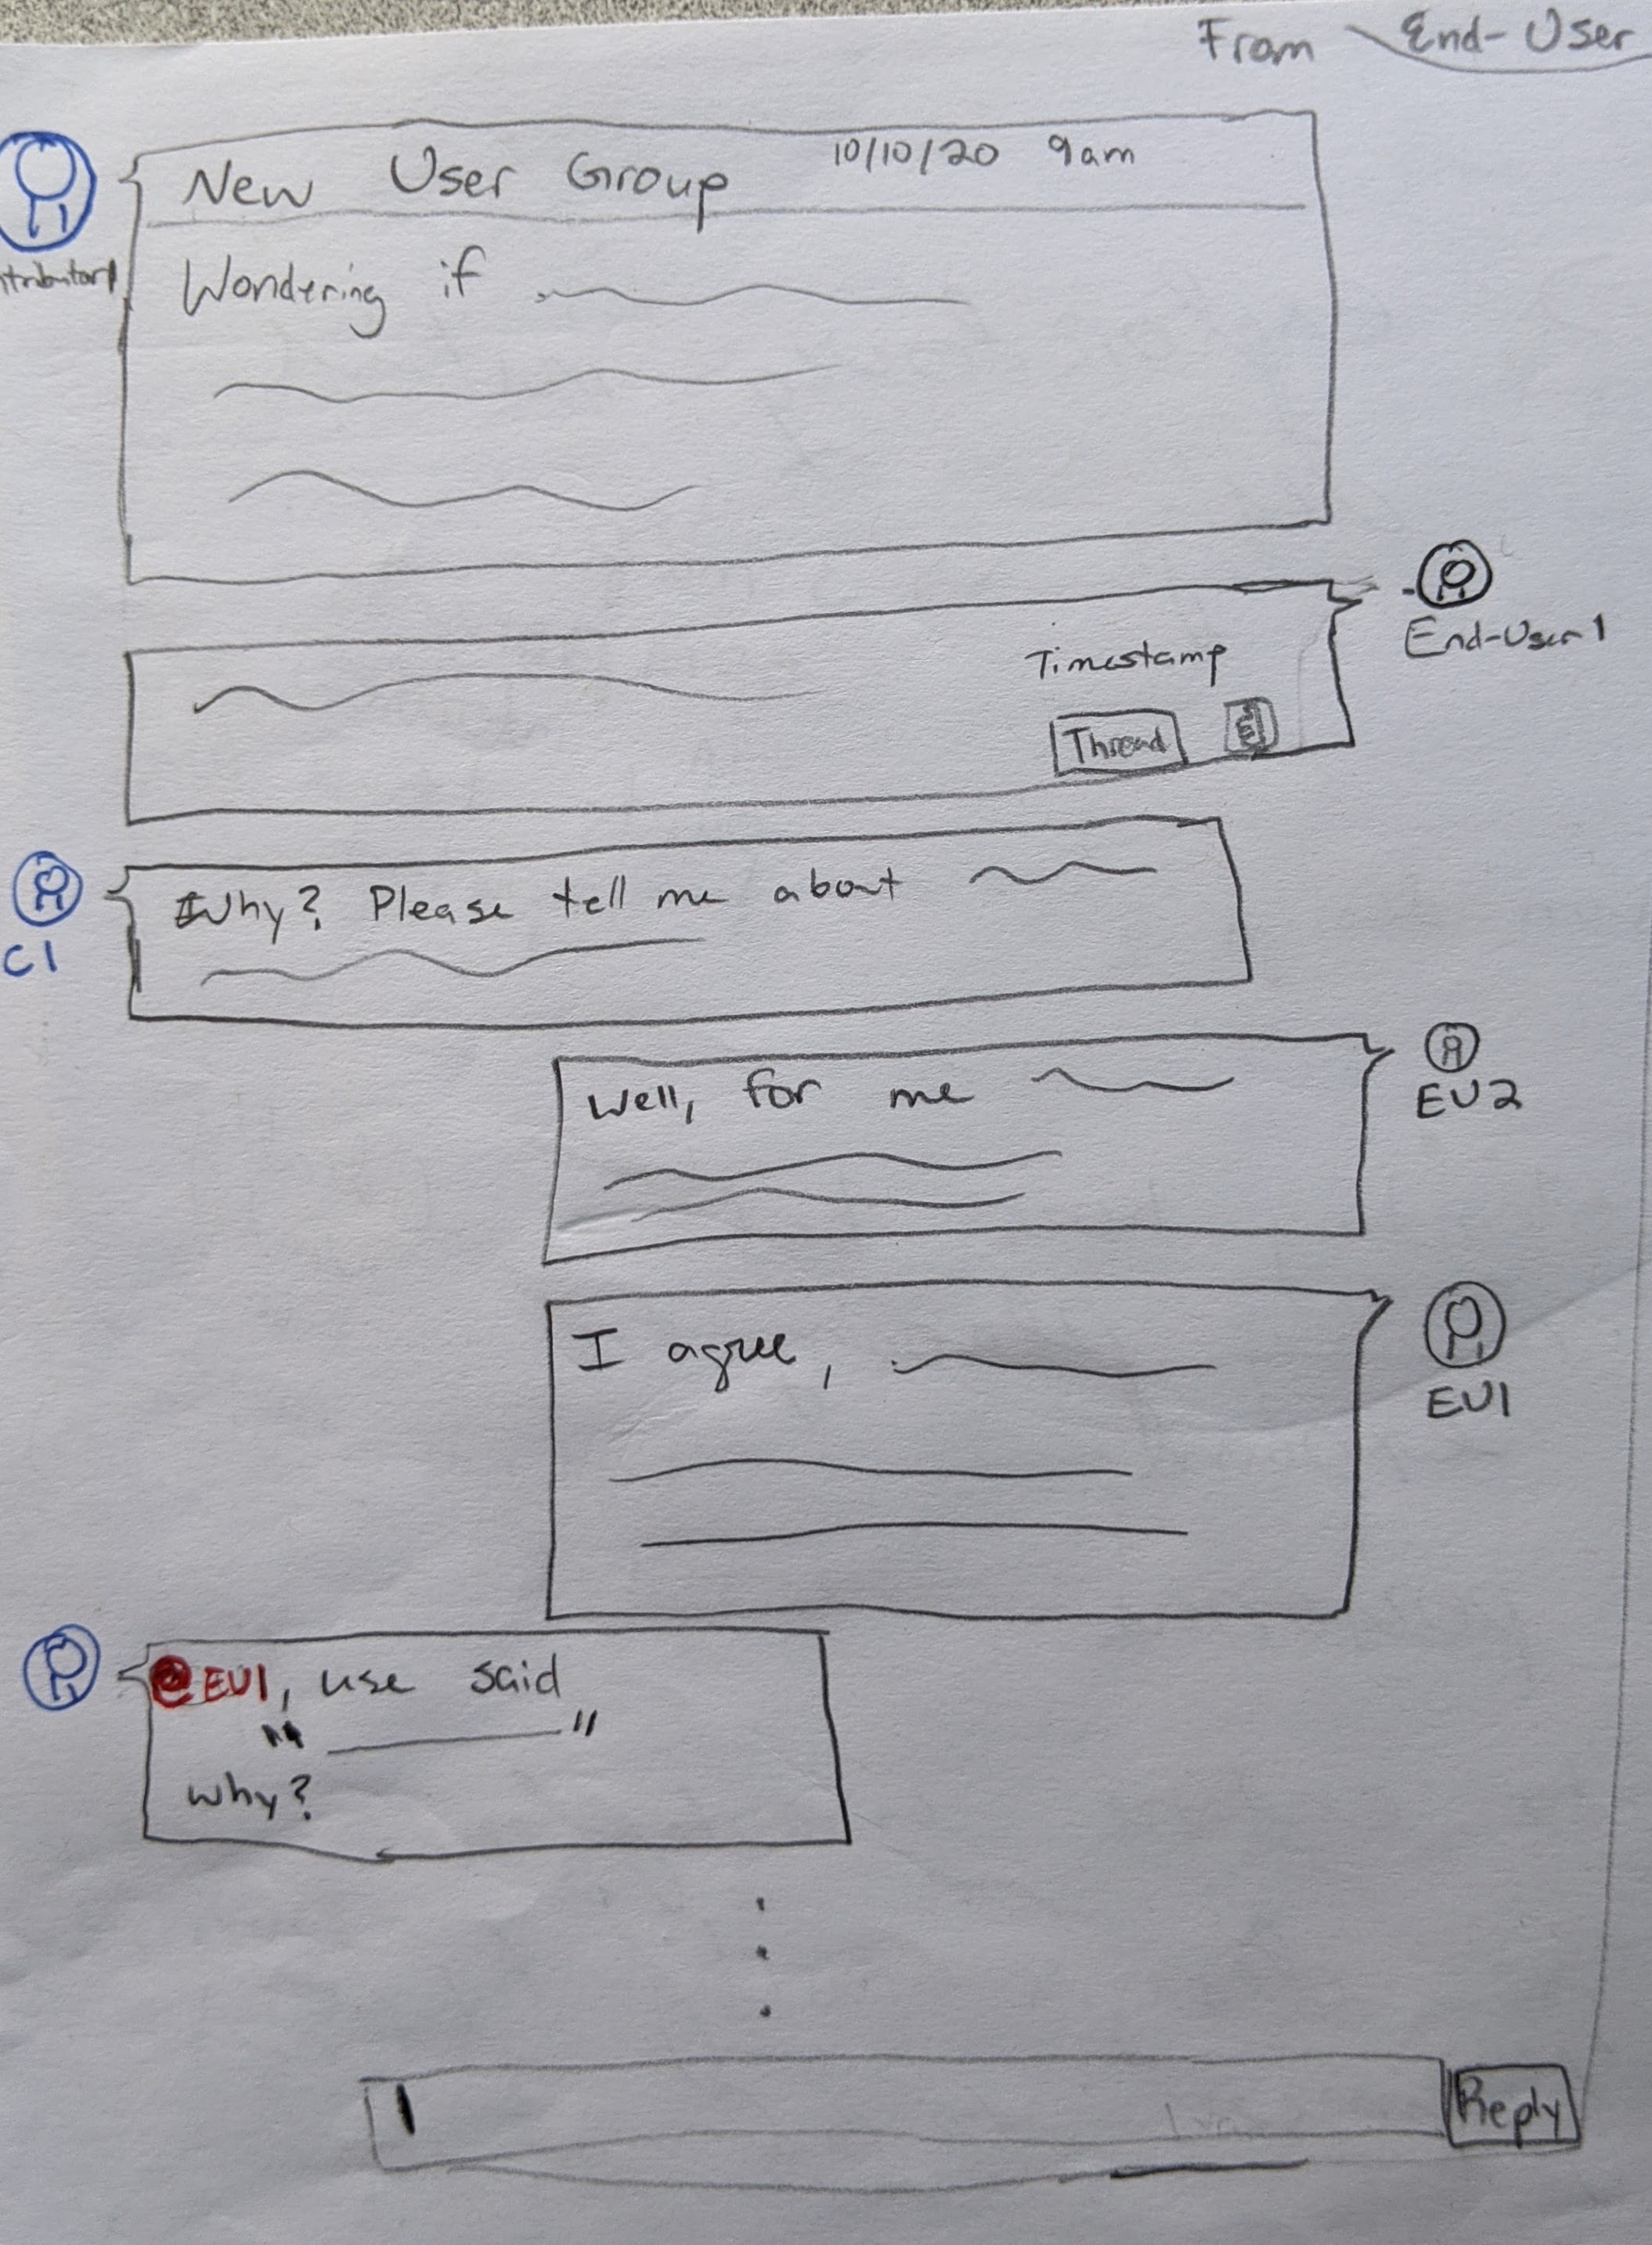 From End-User
New User Group 10/10/20 9am
Wondering if
End-User 1
Timestamp
Thread
Why? Please tell me about
C1
Well, for me
EU2
I agree,
EU1
@EU1, use said
" "
why?
Reply